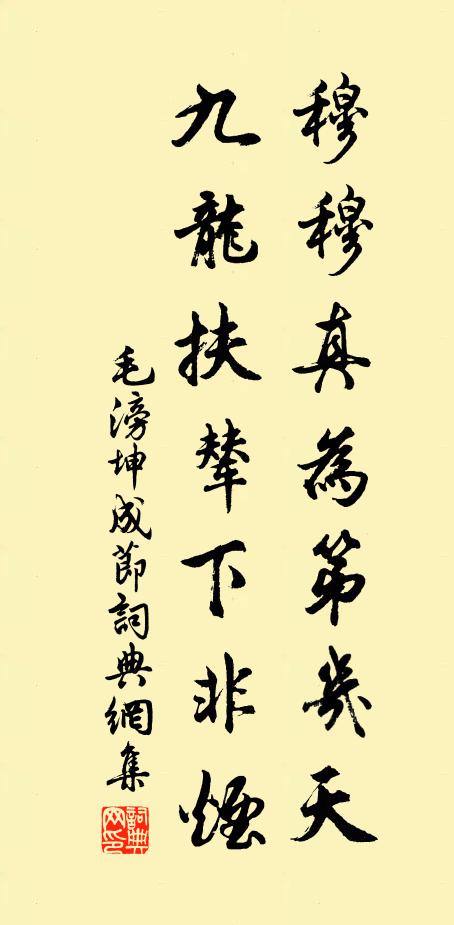 穆穆真為第幾天
九龍扶輦下非煙
毛滂坤成節詞典網集
詞典網印